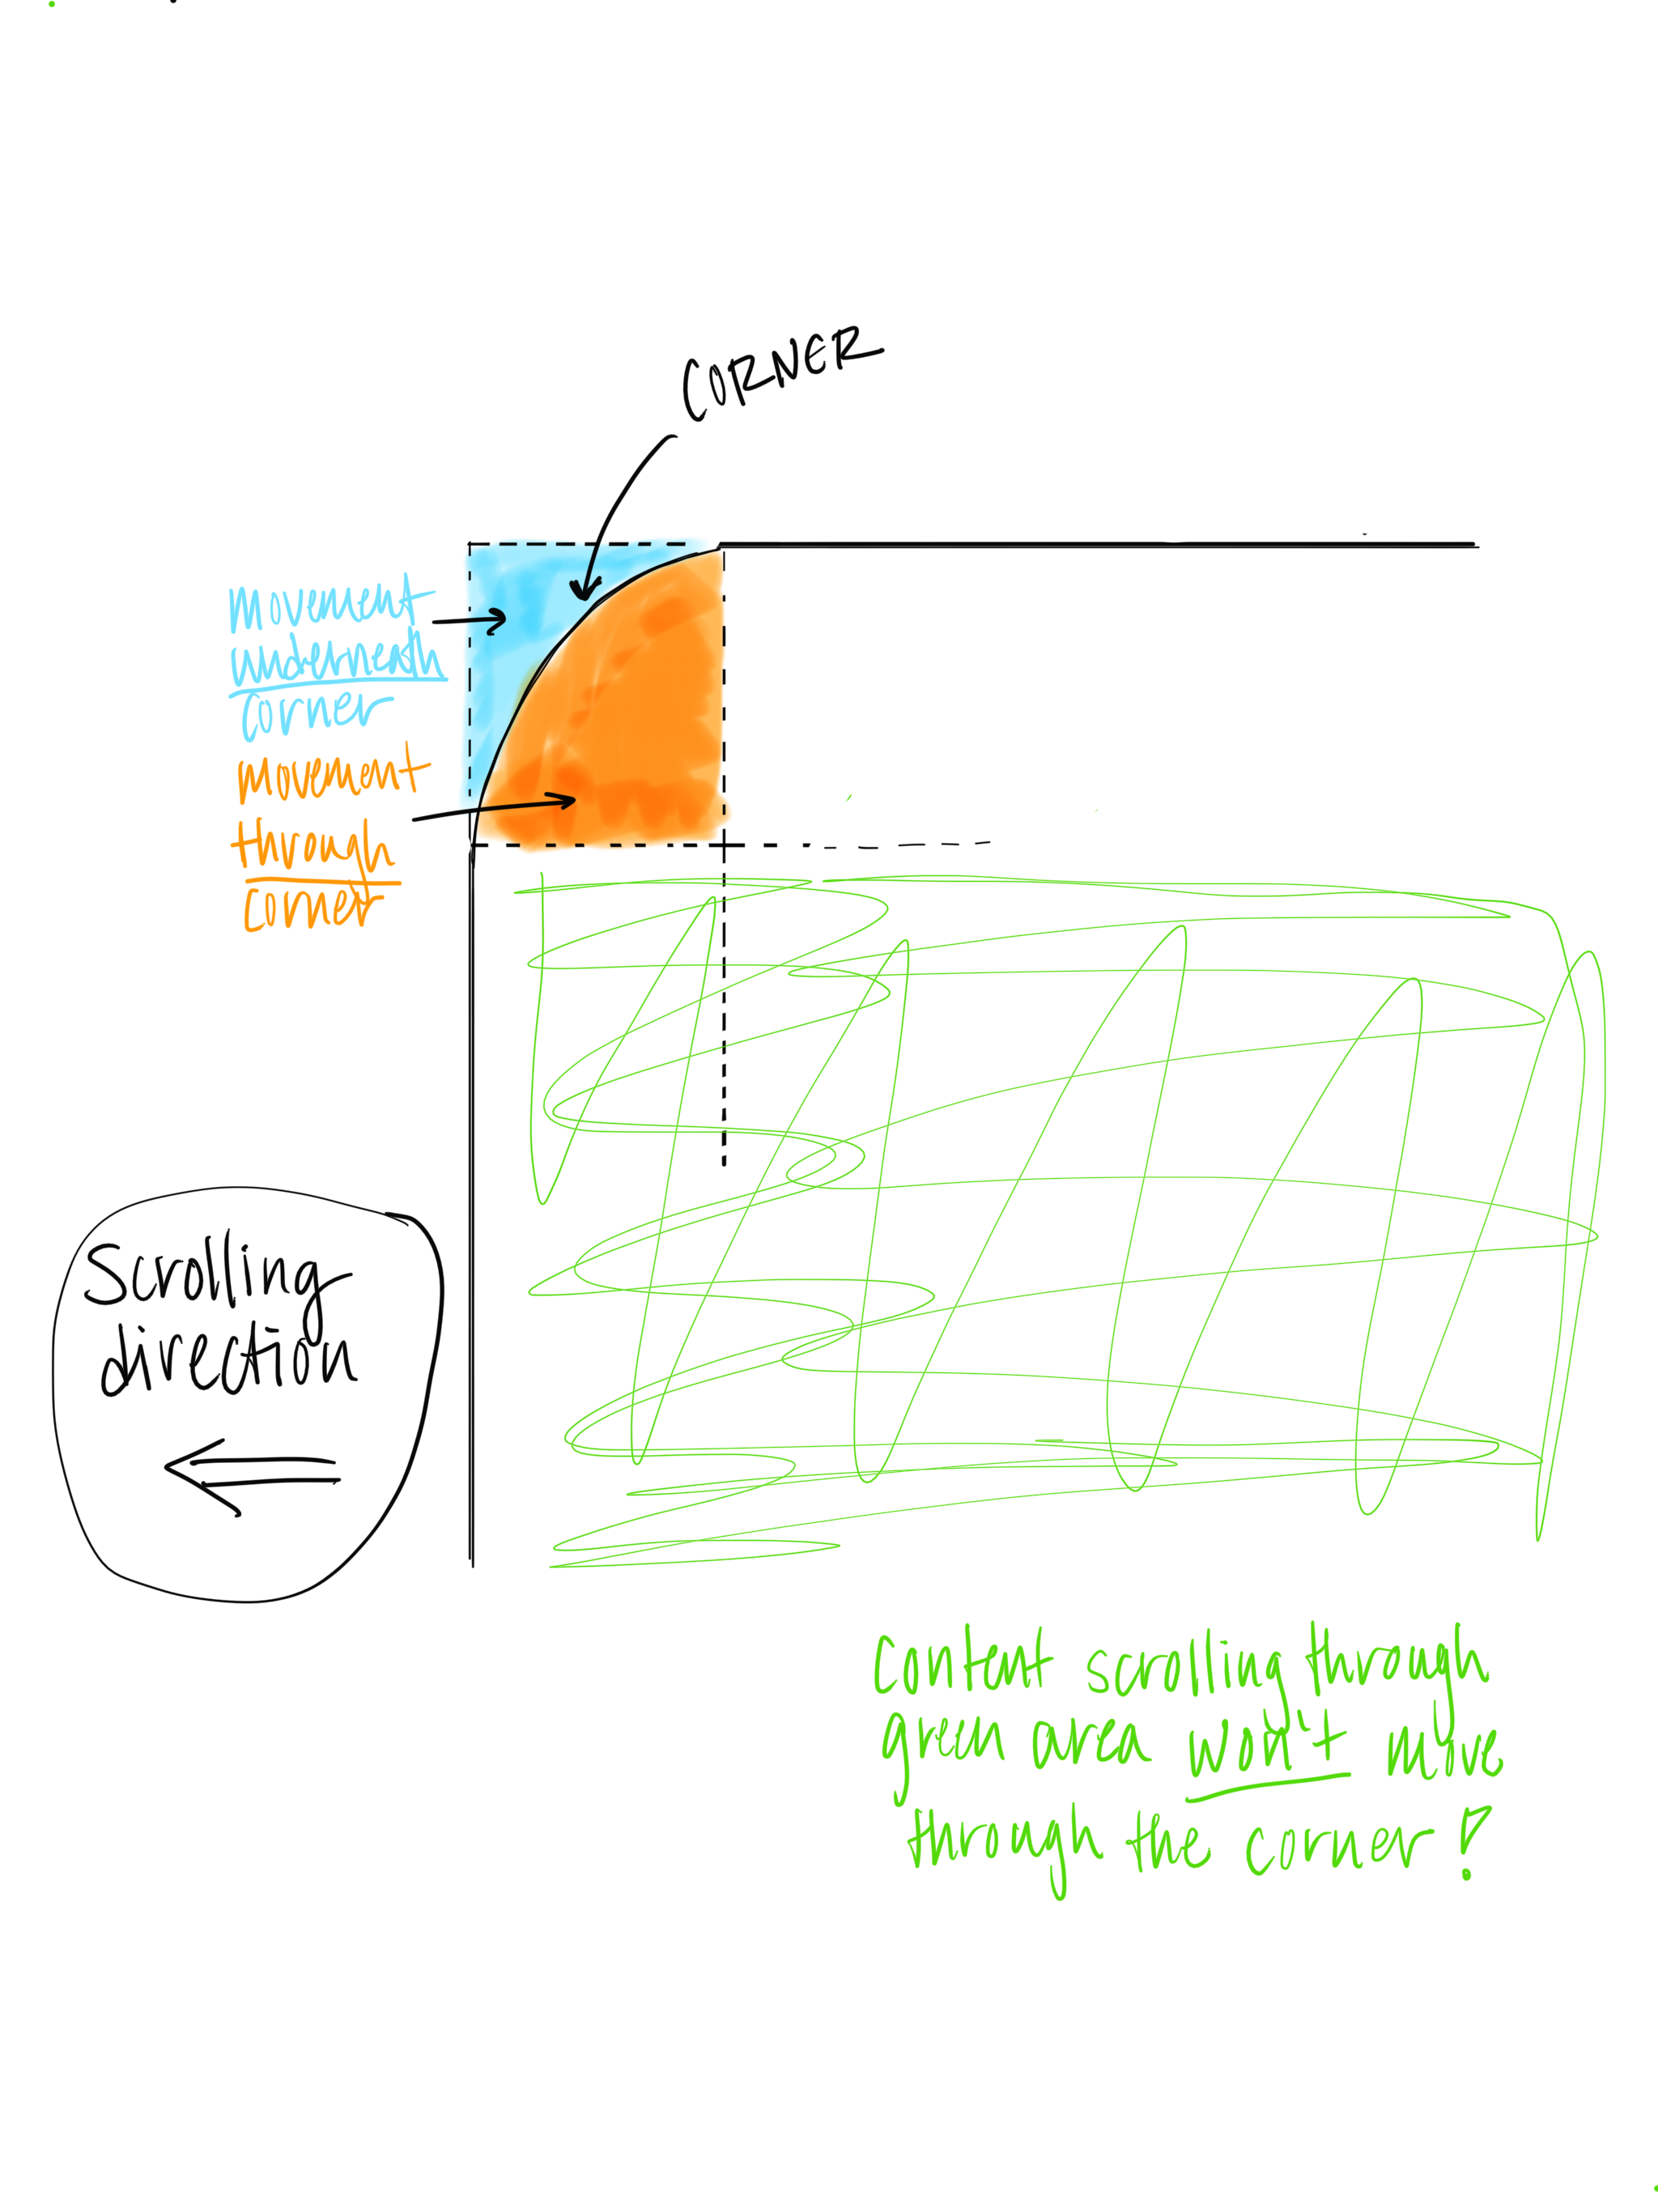 CORNER
movement
underneath
corner
movement
through
corner
Scrolling
direction
Content scrolling through
green area won't move
through the corner?